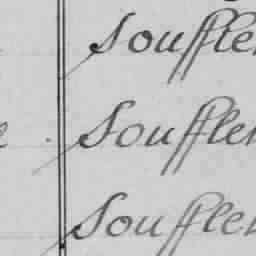 Souffler
Souffler
Souffler